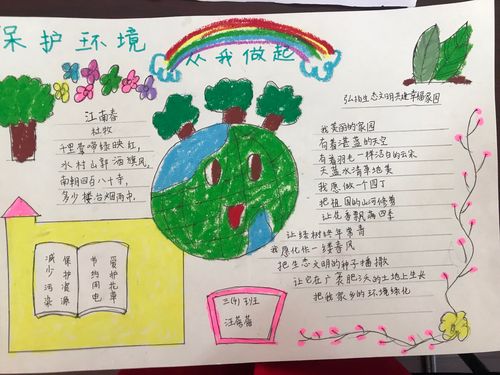 保护环境
从我做起
江南春
杜牧
千里莺啼绿映红，
水村山郭酒旗风。
南朝四百八十寺，
多少楼台烟雨中。
弘扬生态文明共建幸福家园
我美丽的家园
有着湛蓝的天空
有着羽毛一样洁白的云朵
天蓝水清草地美
我愿做一个园丁
把祖国的山河修整
让花香飘满四季
让绿树映年常青
我愿化作一缕春风
把生态文明的种子播撒
让它在广袤肥沃的土地上生长
把我家乡的环境绿化
爱护花草
节约用电
保护资源
减少污染
三(4)班
汪蓓蓓